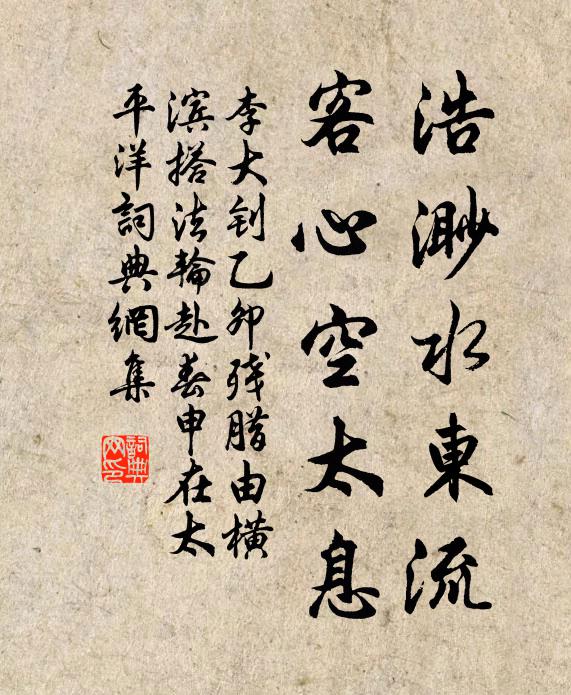 浩渺水東流
客心空太息
李大钊乙卯残腊由横
滨搭法輪赴春申在太
平洋詞典網集
詞典网印